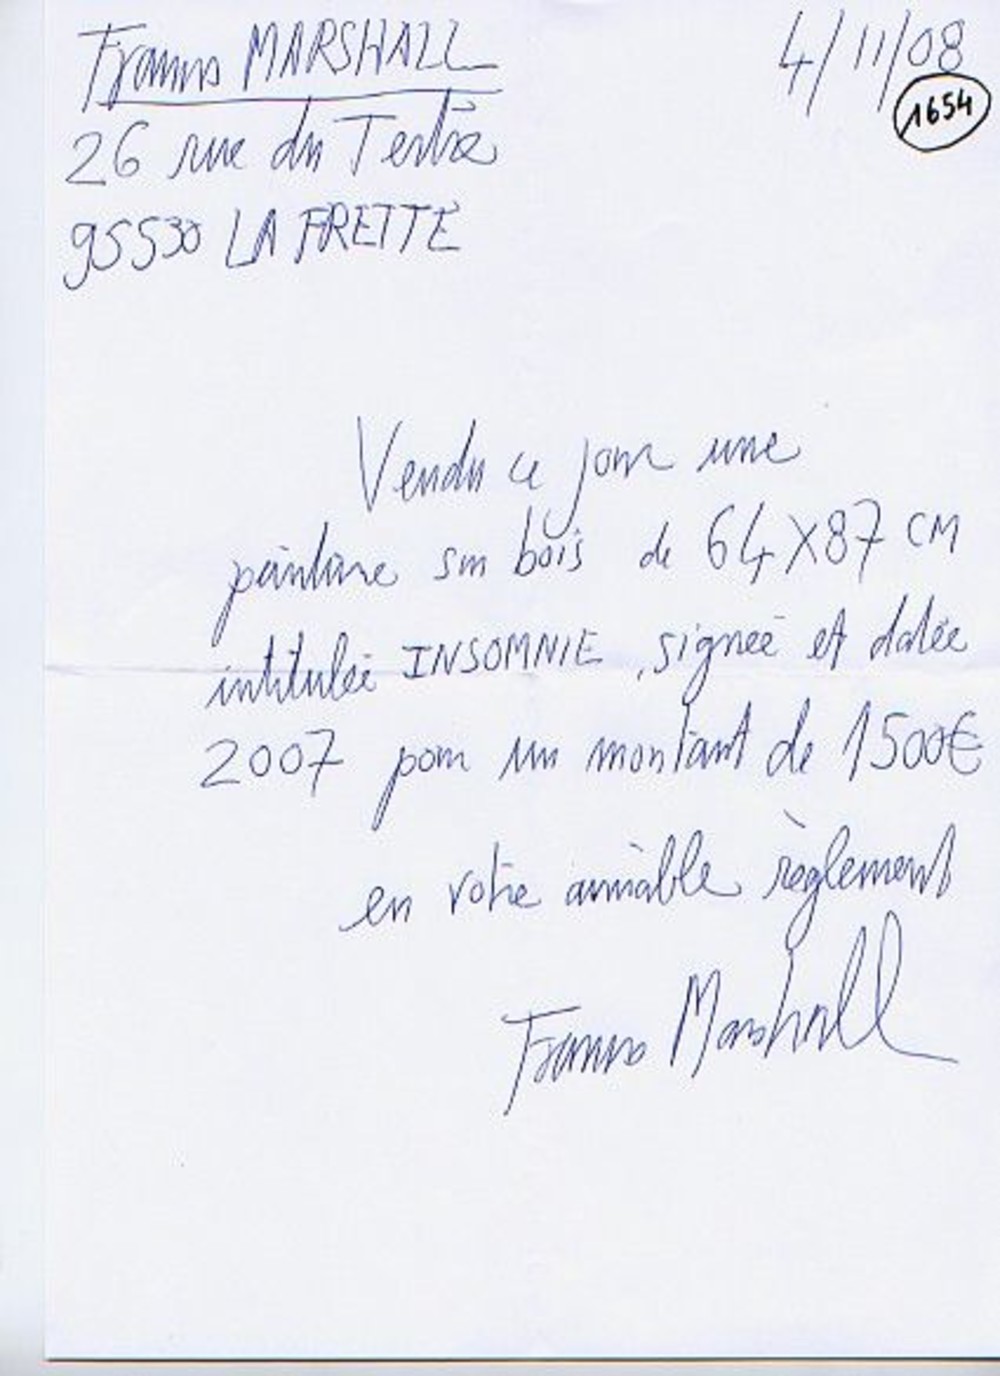 Francis MARSHALL
4/11/08
1654
26 rue du Tertre
95530 LA FRETTE
Vendu ce jour une
peinture sur bois de 64X87 CM
intitulée INSOMNIE, signée et datée
2007 pour un montant de 1500€
en votre aimable règlement
Francis Marshall